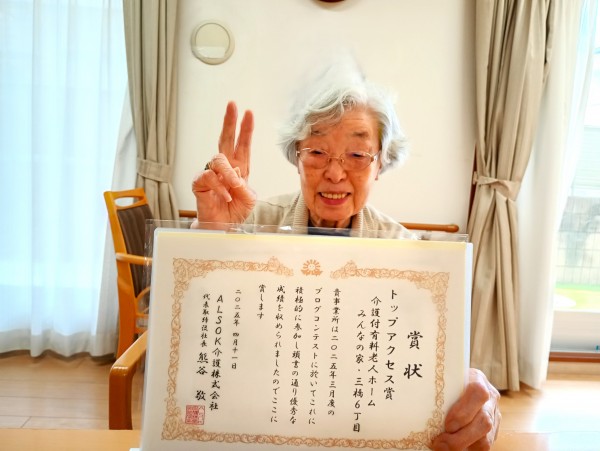 賞状
トップアクセス賞
介護付有料老人ホーム
みんなの家・三橋6丁目
貴事業所は二〇二五年三月度の
ブログコンテストに於いてこれに
積極的に参加し頭書の通り優秀な
成績を収められましたのでここに
賞します
二〇二五年 四月十一日
ALSOK介護株式会社
代表取締役社長 熊谷 敬